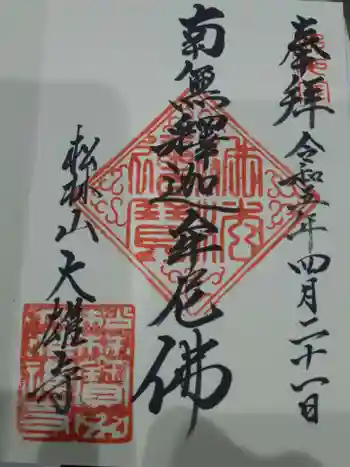 奉拝 令和五年 四月二十一日
南無釋迦牟尼佛
松林山 天雄寺
佛法僧寶